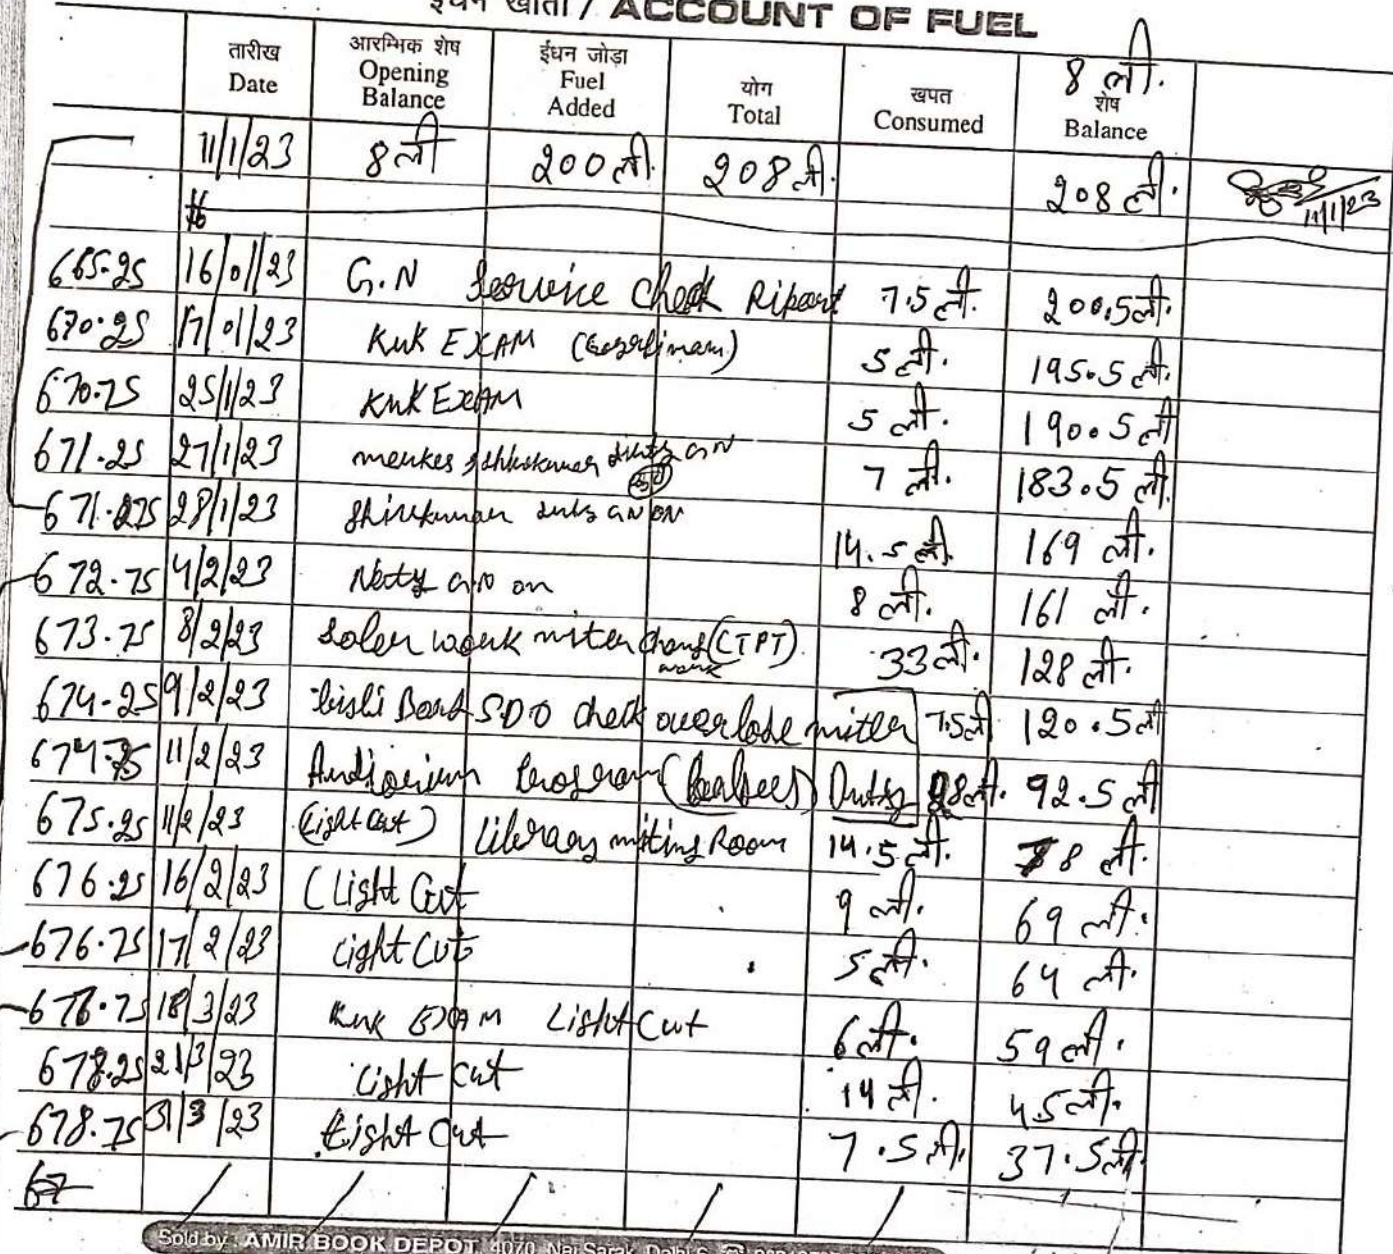 ईंधन खाता / ACCOUNT OF FUEL
8 ली.
तारीख Date आरम्भिक शेष Opening Balance ईंधन जोड़ा Fuel Added योग Total खपत Consumed शेष Balance
11/1/23 8 ली 200 ली. 208 ली. 208 ली. 11/1/23
665.25 16/01/23 G.N Service Check Ripoart 7.5 ली. 200.5 ली.
670.25 17/01/23 KUK EXAM 5 ली. 195.5 ली.
670.75 25/1/23 KUK EXAM 5 ली. 190.5 ली
671.25 27/1/23 GN 7 ली. 183.5 ली.
671.275 28/1/23 Shivkumar GN ON 14.5 ली. 169 ली.
672.75 4/2/23 GN on 8 ली. 161 ली.
673.75 8/2/23 Soler work miter Chang (CTPT) work 33 ली. 128 ली.
674.25 9/2/23 Bisli Board SDO check overlode mitter 7.5 ली 120.5 ली
674.75 11/2/23 Audiorium Program Duty 28 ली. 92.5 ली
675.25 11/2/23 (Light Cut) Liberary miting Room 14.5 ली. 78 ली.
676.25 16/2/23 (Light Cut 9 ली. 69 ली.
676.75 17/2/23 Light Cut 5 ली. 64 ली.
676.75 18/3/23 KUK EXAM Light Cut 6 ली. 59 ली.
678.25 21/3/23 Light Cut 14 ली. 45 ली.
678.75 31/3/23 Light Cut 7.5 ली. 37.5 ली.
67
Sold by : AMIR BOOK DEPOT, 4070, Nai Sarak, Delhi-6